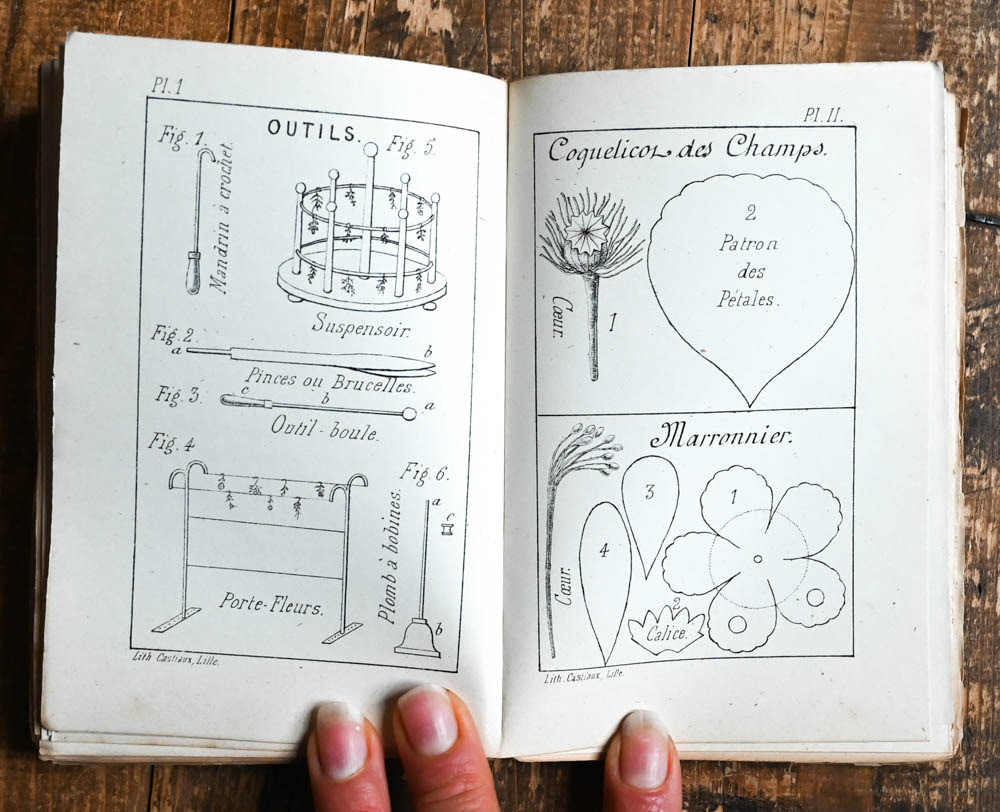 Pl. 1
OUTILS.
Fig. 1.
Mandrin à crochet.
Fig. 5.
Suspensoir.
Fig. 2.
a
b
Pinces ou Brucelles.
Fig. 3.
c
b
a
Outil-boule.
Fig. 4
Porte-Fleurs.
Fig. 6.
a
c
b
Plomb à bobines.
Lith. Castiaux, Lille.
Pl. II.
Coquelicot des Champs.
Cœur.
1
2
Patron
des
Pétales.
Marronnier.
Cœur.
4
3
1
2
Calice.
Lith. Castiaux, Lille.